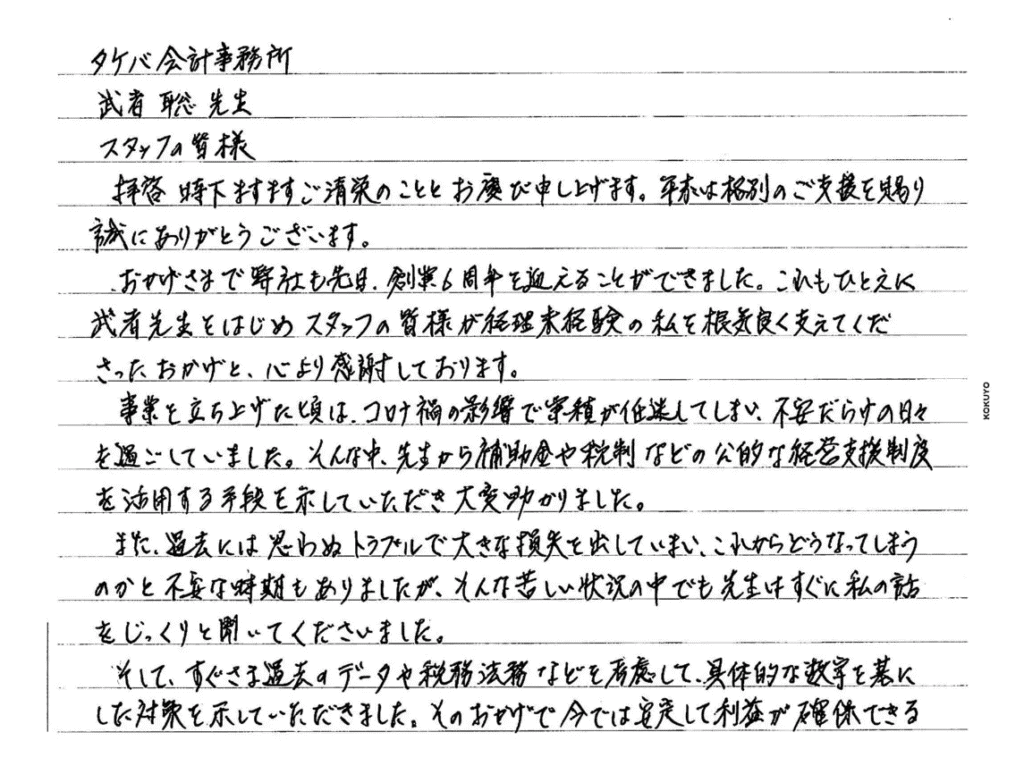 タケバ会計事務所
武者 聡 先生
スタッフの皆様
拝啓 時下ますますご清栄のこととお慶び申し上げます。年末は格別のご支援を賜り
誠にありがとうございます。
おかげさまで弊社も先日、創業6周年を迎えることができました。これもひとえに
武者先生をはじめスタッフの皆様が経理未経験の私を根気良く支えてくだ
さったおかげと、心より感謝しております。
事業を立ち上げた頃は、コロナ禍の影響で業績が低迷してしまい、不安だらけの日々
を過ごしていました。そんな中、先生から補助金や税制などの公的な経営支援制度
を活用する手段を示していただき大変助かりました。
また、過去には思わぬトラブルで大きな損失を出してしまい、これからどうなってしまう
のかと不安な時期もありましたが、そんな苦しい状況の中でも先生はすぐに私の話
をじっくりと聞いてくださいました。
そして、すぐさま過去のデータや税務法務などを考慮して、具体的な数字を基に
した対策を示していただきました。そのおかげで今では安定して利益が確保できる
KOKUYO